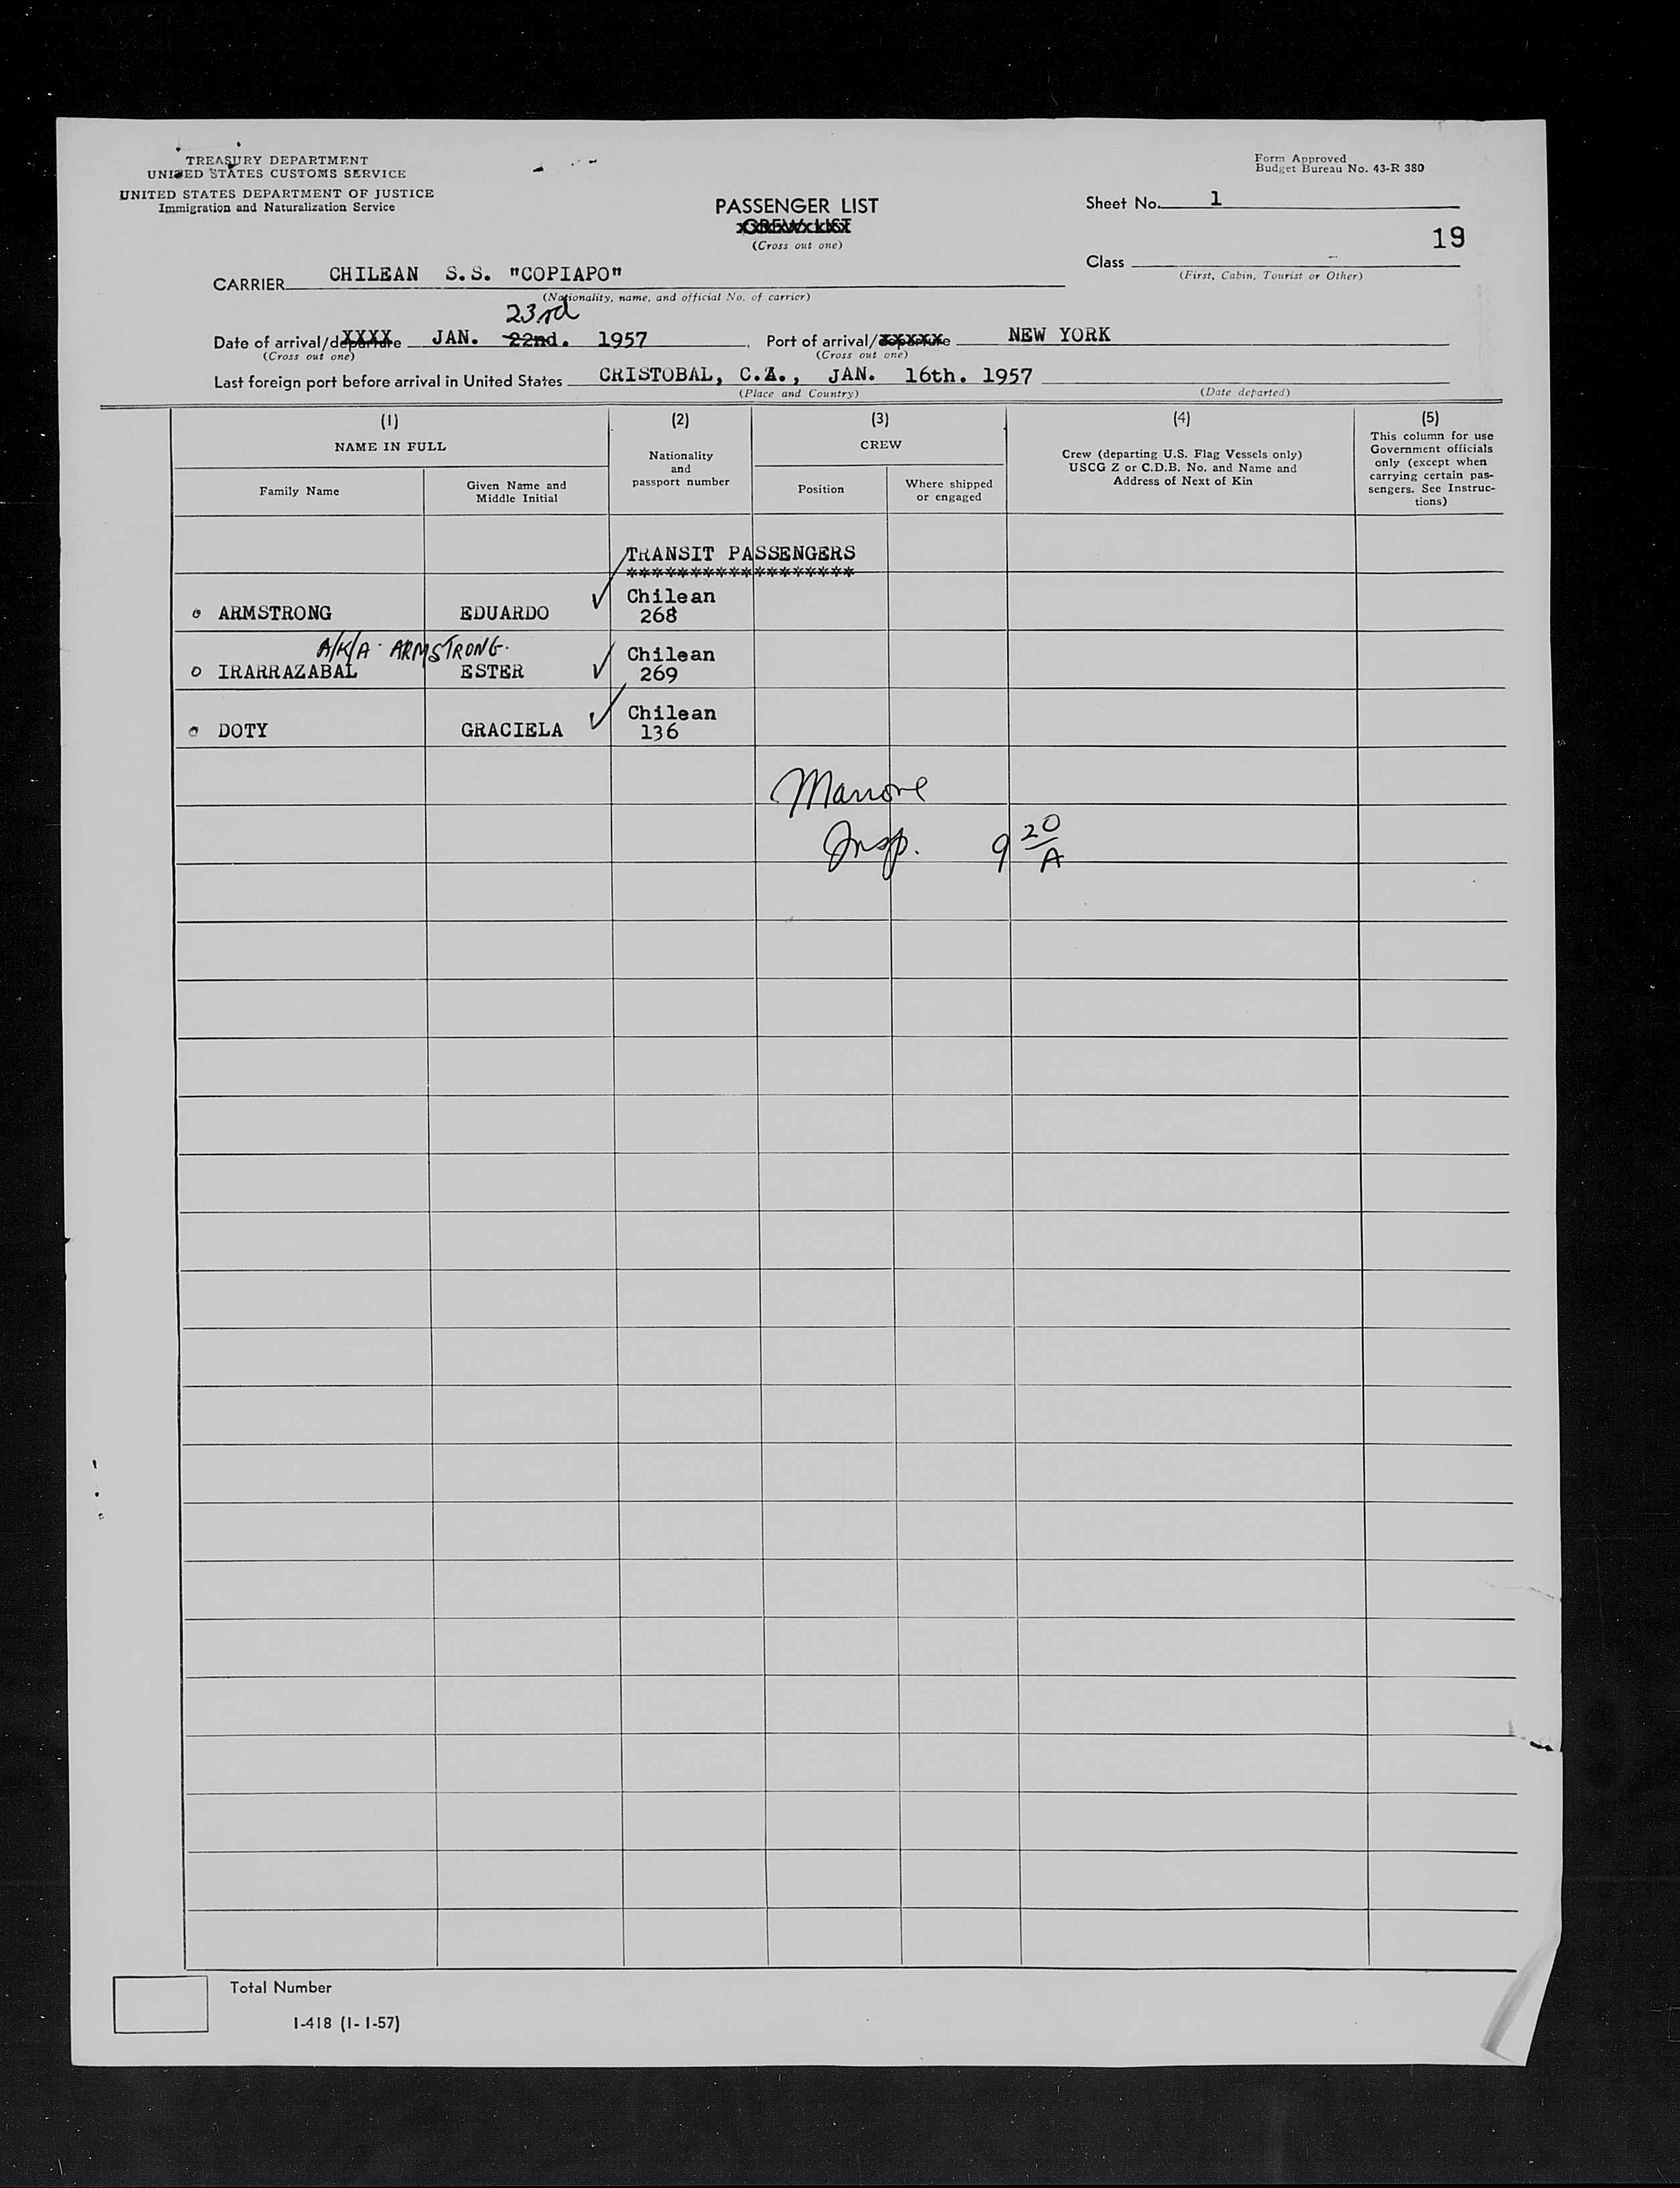 TREASURY DEPARTMENT
UNITED STATES CUSTOMS SERVICE
UNITED STATES DEPARTMENT OF JUSTICE
Immigration and Naturalization Service
Form Approved
Budget Bureau No. 43-R 380
PASSENGER LIST
CREW LIST
(Cross out one)
Sheet No. 1
19
Class
(First, Cabin, Tourist or Other)
CARRIER CHILEAN S.S. "COPIAPO"
(Nationality, name, and official No. of carrier)
23rd
Date of arrival/departure JAN. 22nd. 1957, Port of arrival/departure NEW YORK
(Cross out one) (Cross out one)
Last foreign port before arrival in United States CRISTOBAL, C.Z., JAN. 16th. 1957
(Place and Country) (Date departed)
(1) (2) (3) (4) (5)
NAME IN FULL
Family Name
Given Name and
Middle Initial
Nationality
and
passport number
CREW
Position
Where shipped
or engaged
Crew (departing U.S. Flag Vessels only)
USCG Z or C.D.B. No. and Name and
Address of Next of Kin
This column for use
Government officials
only (except when
carrying certain pas-
sengers. See Instruc-
tions)
TRANSIT PASSENGERS
******************
o ARMSTRONG EDUARDO ✓ Chilean
268
A/K/A ARMSTRONG.
o IRARRAZABAL ESTER ✓ Chilean
269
o DOTY GRACIELA ✓ Chilean
136
Insp. 9 20/A
Total Number
I-418 (1-1-57)